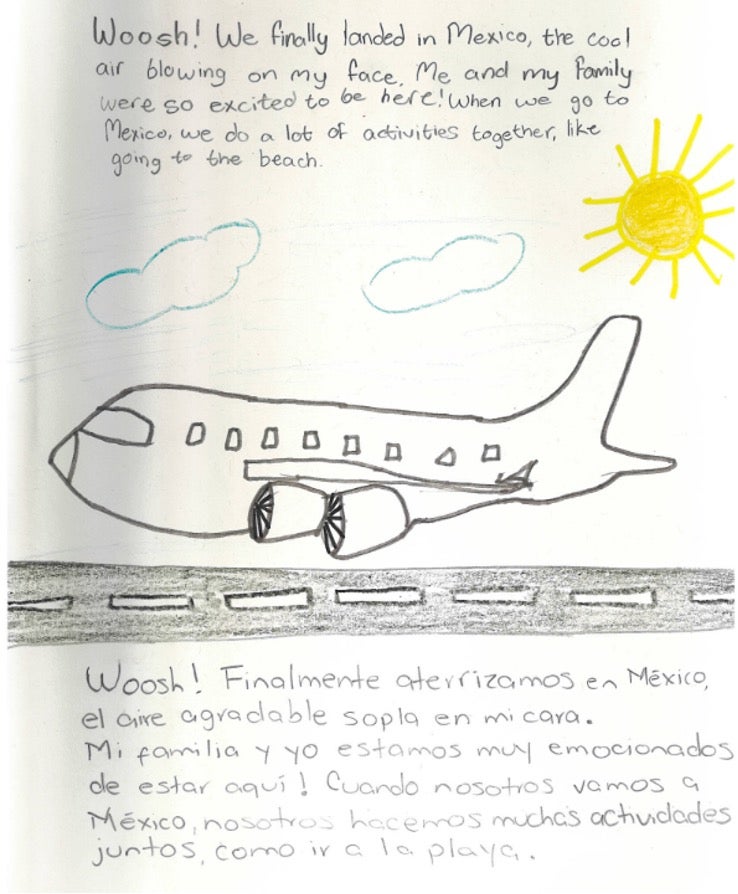 Woosh! We finally landed in Mexico, the cool
air blowing on my face. Me and my family
were so excited to be here! When we go to
Mexico, we do a lot of activities together, like
going to the beach.
Woosh! Finalmente aterrizamos en México,
el aire agradable sopla en mi cara.
Mi familia y yo estamos muy emocionados
de estar aquí! Cuando nosotros vamos a
México, nosotros hacemos muchas actividades
juntos, como ir a la playa.